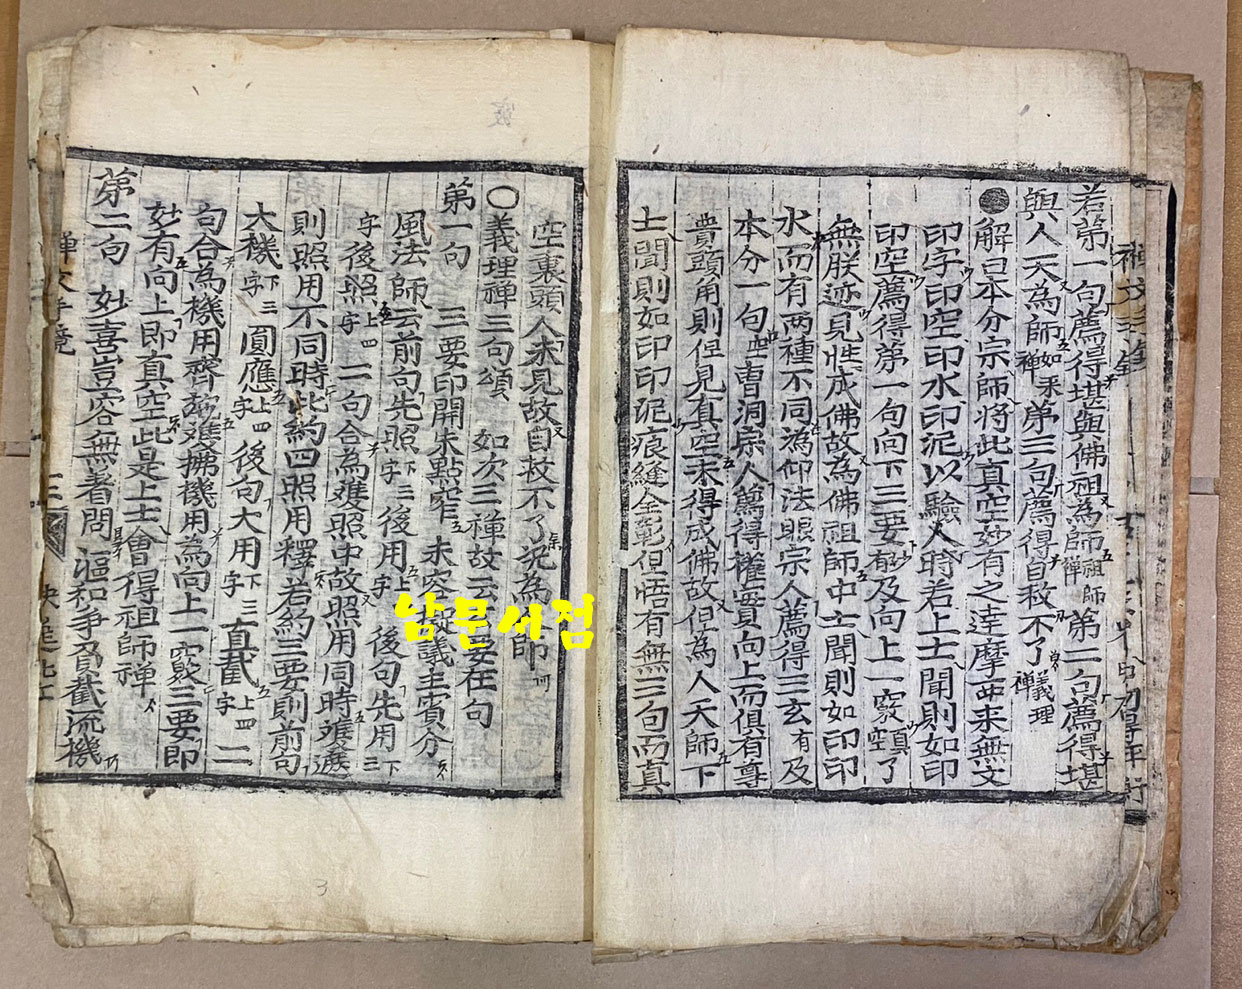 若第一句薦得堪與佛祖爲師祖師禪第二句薦得堪
與人天爲師如來禪第三句薦得自救不了義理禪
解曰本分宗師將此真空妙有之達摩西來無文
印字印空印水印泥以驗人時若上士聞則如印
印空薦得第一句向下三要及向上一竅真空了
無朕迹見性成佛故爲佛祖師中士聞則如印印
水而有两種不同溈仰法眼宗人薦得三玄有及
本分一句曹洞宗人薦得權實向上而俱有尊
貴頭角則但見真空未得成佛故但爲人天師下
士聞則如印印泥痕縫全彰但悟有無三句而真
空裏頭人未見故自救不了況爲師
○義理禪三句頌 如次三禪故云三要在句
第一句 三要印開朱點窄 未容擬議主賓分
風法師云前句先照下三字後用上五字後句先用下三
字後照上四字二句合爲雙照中故照用同時雙遮
則照用不同時此約四照用釋若約三要則前句
大機下三字圓應上四字後句大用下三字直截上四字二
句合爲機用齊施雙拂機用爲向上一竅三要即
妙有向上即真空此是上士會得祖師禪
第二句 妙喜豈容無著問 漚和爭負截流機
남문서점
3